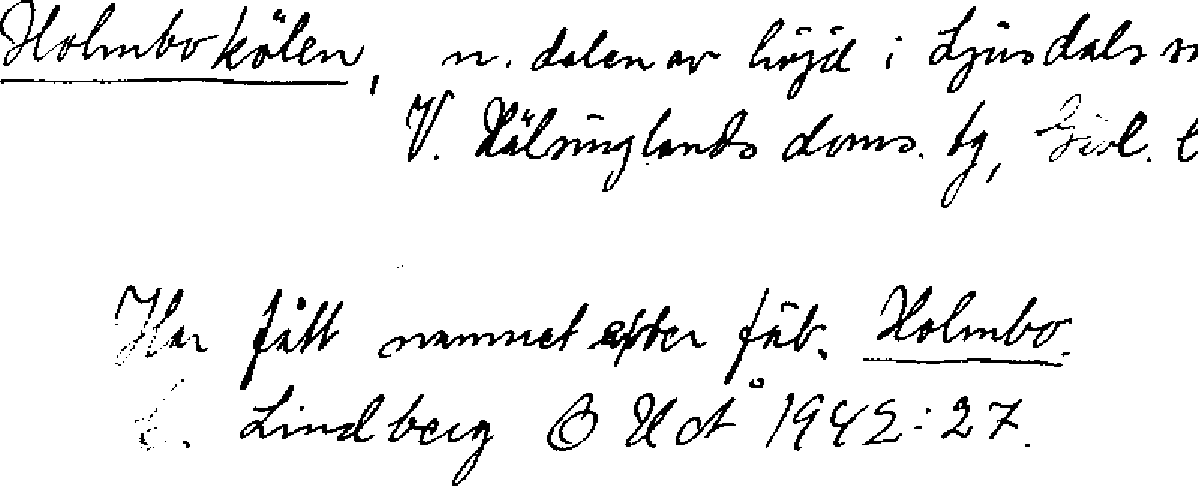 Holmbokölen, n. delen av höjd i Ljusdals
V. Hälsinglands doms. tg, Gävl.
Har fått namnet efter fäb. Holmbo.
C. Lindberg OUÅ 1942:27.